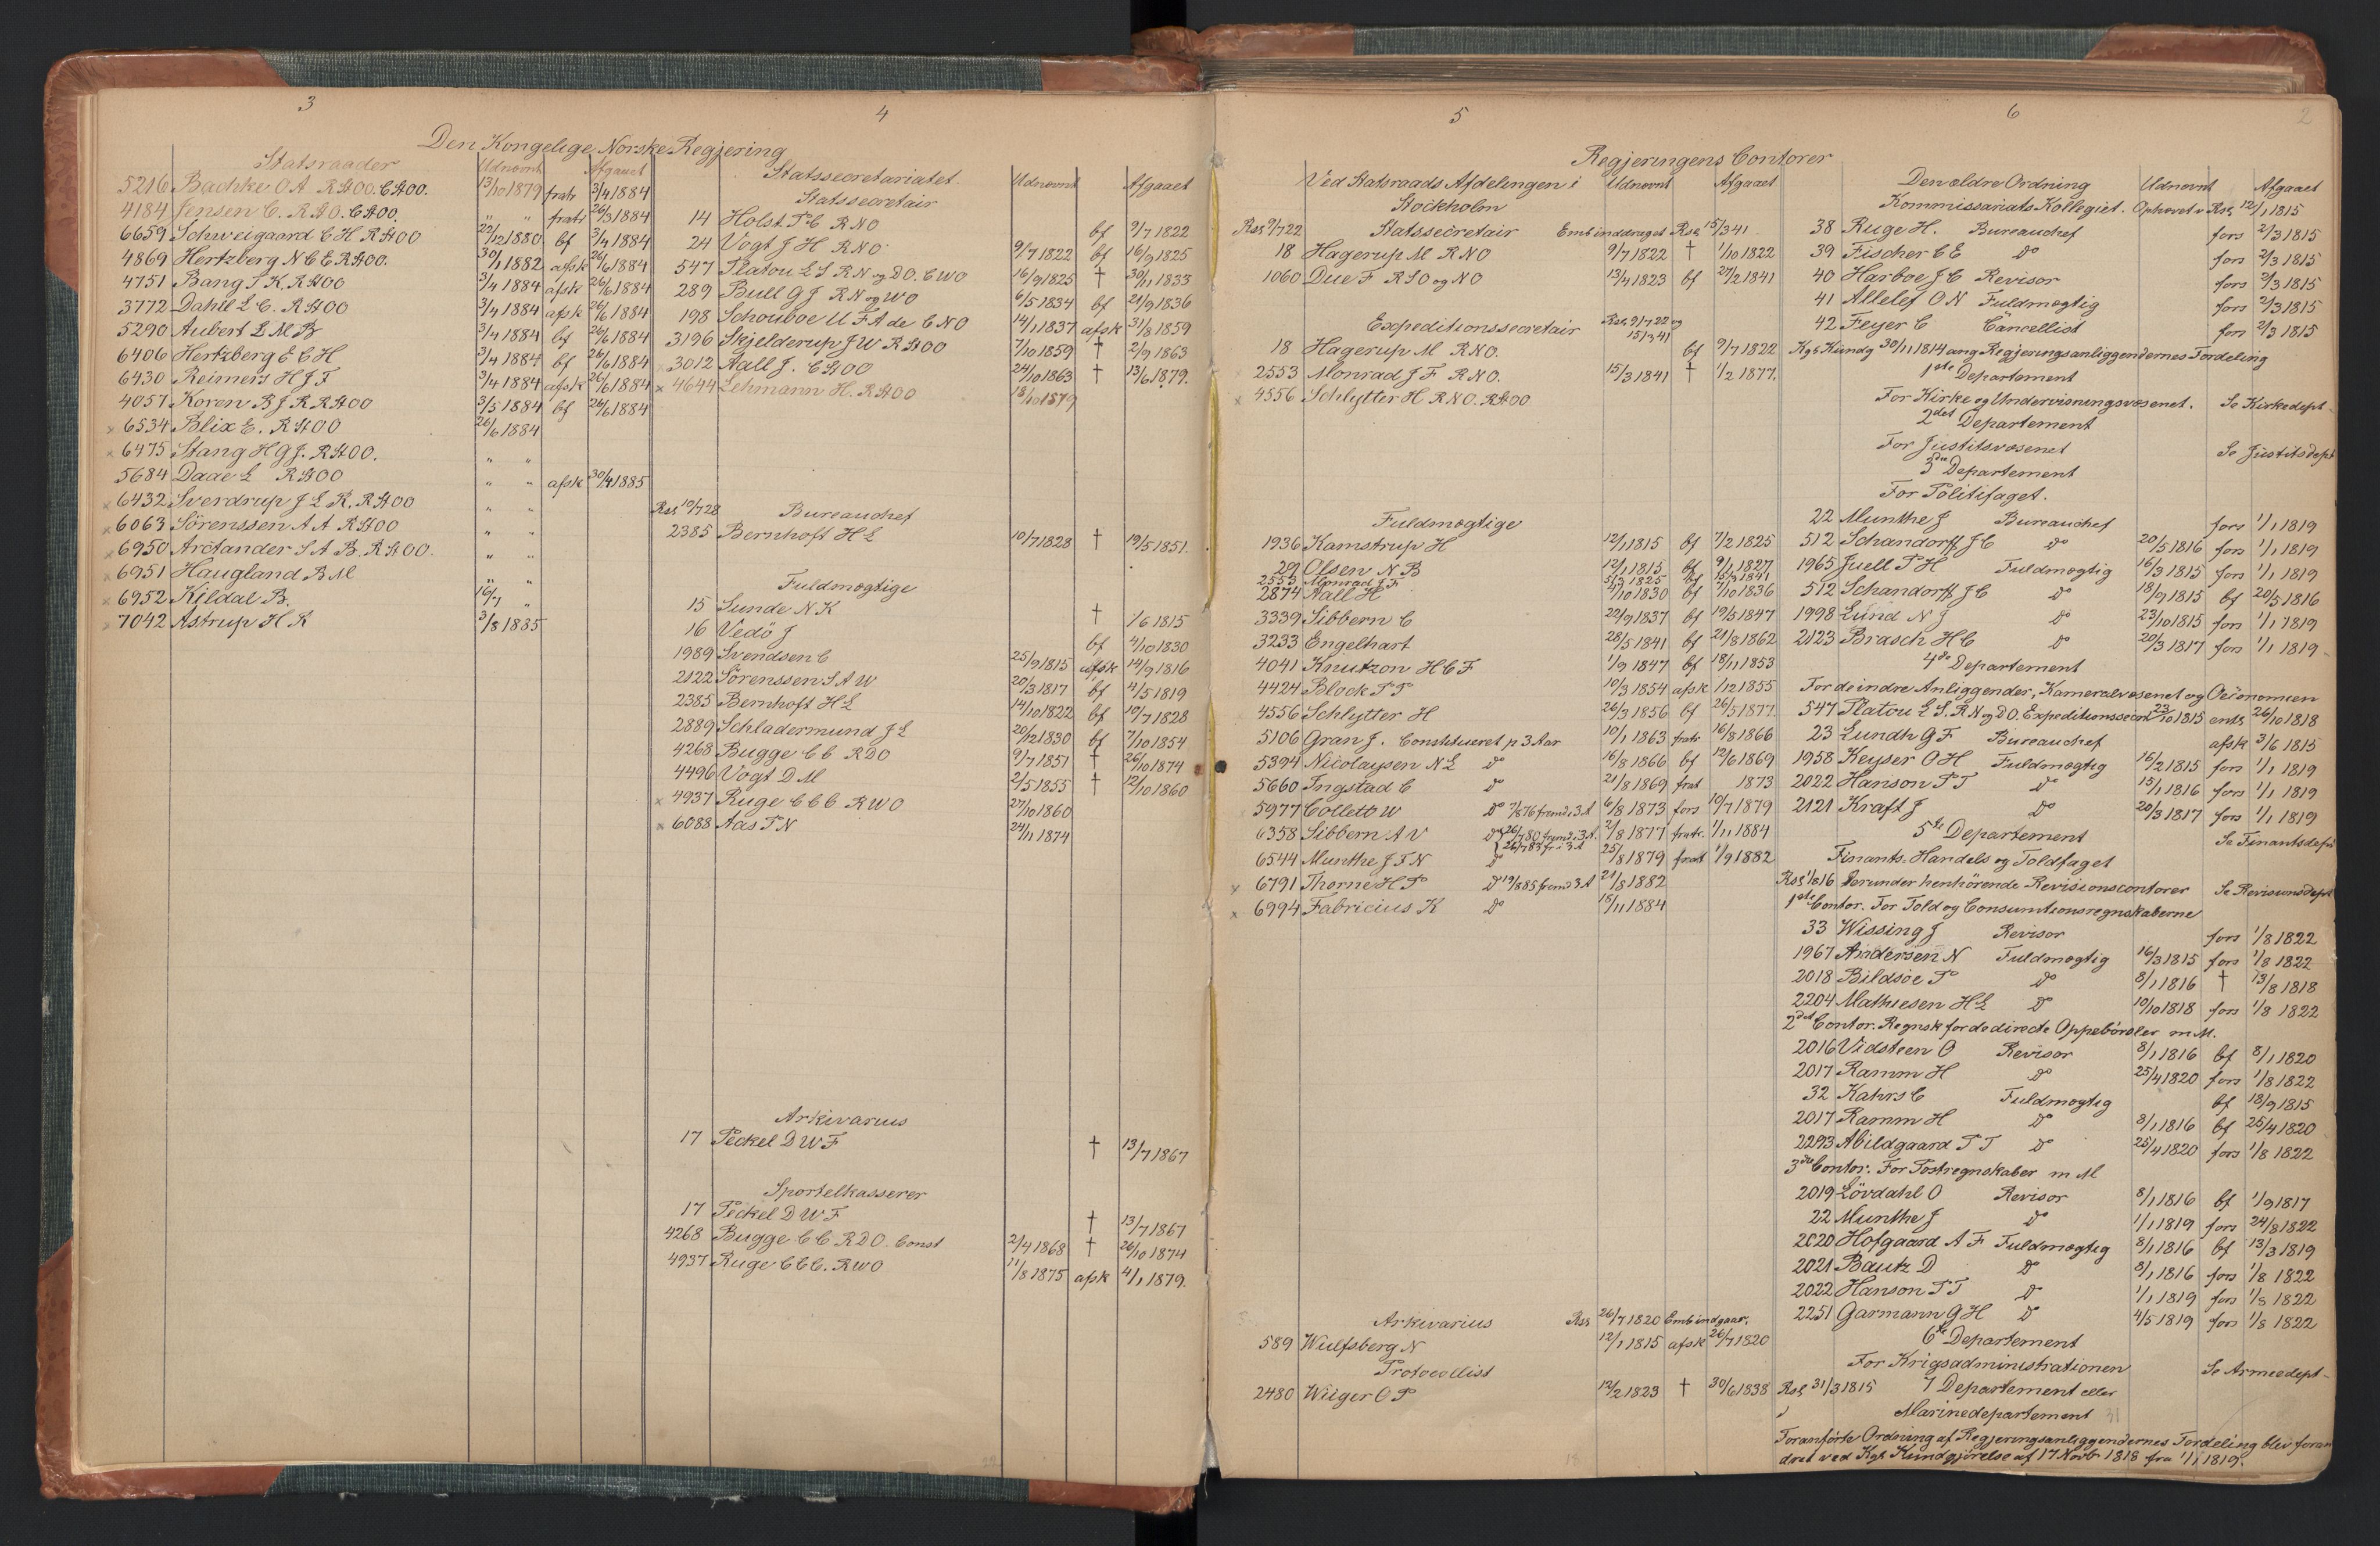 3
Den Kongelige Norske Regjering
Statsraader Udnævnt Afgaaet
5216 Bachke O A RStOO. CStOO. 13/10 1879 fratr 3/4 1884
4184 Jensen C. RStO. CStOO. " " fratr 26/3 1884
6659 Schweigaard C H RStOO 22/12 1880 bf 3/4 1884
4869 Hertzberg N C E RStOO. 30/1 1882 afsk 26/6 1884
4751 Bang T K. RStOO 3/4 1884 afsk 26/6 1884
3772 Dahll L C. RStOO 3/4 1884 afsk 26/6 1884
5290 Aubert L M B 3/4 1884 bf 26/6 1884
6406 Hertzberg E C H 3/4 1884 bf 26/6 1884
6430 Reimers H J F 3/4 1884 afsk 26/6 1884
4057 Koren B J R RStOO 3/5 1884 bf 26/6 1884
x 6534 Blix E. RStOO 26/6 1884
x 6475 Stang H G J. RStOO. " "
5684 Daae L RStOO " " afsk 30/4 1885
x 6432 Sverdrup J L R. RStOO " "
x 6063 Sörenssen A A RStOO " "
x 6950 Arctander S A B. RStOO. " "
x 6951 Haugland B M " "
x 6952 Kildal B. 16/7 "
x 7042 Astrup H R 3/8 1885
4
Statssecretariatet. Udnævnt Afgaaet
Statssecretair
14 Holst P C RNO bf 9/7 1822
24 Vogt J H RNO 9/7 1822 bf 16/9 1825
547 Platou L S RN og DO. CWO 16/9 1825 † 30/11 1833
289 Bull G J RN og WO 6/5 1834 bf 21/9 1836
198 Schouboe U F A de CNO 14/1 1837 afsk 31/8 1859
3196 Skjelderup J W RStOO 7/10 1859 † 2/9 1863
3012 Aall J. CStOO 24/10 1863 † 13/6 1879.
x 4644 Lehmann H. RStOO 18/10 1879
Res 10/7 28 Bureauchef
2385 Bernhoft H L 10/7 1828 † 19/5 1851.
Fuldmægtige
15 Sunde N K † 1/6 1815
16 Vedö J bf 4/10 1830
1989 Svendsen C 25/9 1815 afsk 14/9 1816
2122 Sörenssen S A W 20/3 1817 bf 4/5 1819
2385 Bernhoft H L 14/10 1822 bf 10/7 1828
2889 Schladermund J L 20/12 1830 bf 7/10 1854
4268 Bugge C C RDO 9/7 1851 † 26/10 1874
4496 Vogt D M 2/5 1855 † 12/10 1860
x 4937 Ruge C C C RWO 27/10 1860
x 6088 Aas P N 24/11 1874
Arkivarius
17 Peckel D W F † 13/7 1867
Sportelkasserer
17 Peckel D W F † 13/7 1867
4268 Bugge C C RDO. Const 2/4 1868 † 26/10 1874
4937 Ruge C C C. RWO 11/8 1875 afsk 4/1 1879.
5
Regjeringens Contorer
Ved Statsraads Afdelingen i Udnævnt Afgaaet
Stockholm
Res 9/7 22 Statssecretair Emb inddraget Res 15/3 41
18 Hagerup M RNO 9/7 1822 † 1/10 1822
1060 Due F RSO og NO 13/4 1823 bf 27/2 1841
Expeditionssecretair Res. 9/7 22 og
15/3 41
18 Hagerup M RNO. bf 9/7 1822
2553 Monrad J F RNO. 15/3 1841 † 1/2 1877.
x 4556 Schlytter H RNO. RStOO
Fuldmægtige
1936 Kamstrup H 12/1 1815 bf 7/2 1825
29 Olsen N B 12/1 1815 bf 9/1 1827
2553 Monrad J F 5/3 1825 bf 15/3 1841
2874 Aall H 2/10 1830 bf 7/10 1836
3339 Sibbern C 22/9 1837 bf 19/5 1847
3233 Engelhart 28/5 1841 bf 21/8 1862
4041 Knutzon H C F 1/9 1847 bf 18/11 1853
4424 Block P P 10/3 1854 afsk 1/12 1855
4556 Schlytter H 26/3 1856 bf 26/5 1877.
5106 Gran J. Constitueret p 3 Aar 10/1 1863 fratr. 16/8 1866
5394 Nicolaysen N L do 16/8 1866 bf 12/6 1869
5660 Ingstad C do 21/8 1869 frat 1873
5977 Collett W do 7/8 76 fremd. 3 A 6/8 1873 fors 10/7 1879
6358 Sibbern A V do 26/7 80 fremd. 3 A. 2/8 1877 fratr. 1/11 1884
26/7 83 fr i 3 A
6544 Munthe J F N do 25/8 1879 frat 1/9 1882
x 6791 Thorne H P do 19/8 85 fremd 3 A 21/8 1882
x 6994 Fabricius K do 18/11 1884
Arkivarius Res 26/7 1820 Emb indgaar.
589 Wulfsberg N 12/1 1815 afsk 26/7 1820
Protocollist
2480 Wüger O P 12/2 1823 † 30/6 1838
6
2
Den ældre Ordning Udnævnt Afgaaet
Kommissariats Kollegiet. Ophævet v Res 12/1 1815
38 Ruge H. Bureauchef fors 2/3 1815
39 Fischer C E do fors 2/3 1815
40 Harboe J C Revisor fors 2/3 1815
41 Allelef O N Fuldmægtig fors 2/3 1815
42 Feyer C Cancellist fors 2/3 1815
Kgl Kundg 30/11 1814 ang Regjeringsanliggendernes Fordeling
1ste Departement
For Kirke og Undervisningsvæsenet. Se Kirkedept.
2det Departement
For Justitsvæsenet Se Justitsdept
3die Departement
For Politifaget.
22 Munthe J Bureauchef fors 1/1 1819
512 Schandorff J C do 20/5 1816 fors 1/1 1819
1965 Juell P H Fuldmægtig 16/3 1815 fors 1/1 1819
512 Schandorff J C do 18/9 1815 bf 20/5 1816
1998 Lund N J do 23/10 1815 fors 1/1 1819
2123 Brasch H C do 20/3 1817 fors 1/1 1819
4de Departement
For de indre Anliggender, Kameralvæsenet og Oeconomien
547 Platou L S. RN og DO. Expeditionssecr 23/10 1815 ents 26/10 1818
23 Lundh G F Bureauchef afsk 3/6 1815
1958 Keyser O H Fuldmægtig 16/2 1815 fors 1/1 1819
2022 Hanson P T do 15/1 1816 fors 1/1 1819
2121 Kraft J do 20/3 1817 fors 1/1 1819
5te Departement Se Finantsdept
Finants. Handels og Toldfaget
Res 1/8 16 Herunder henhörende Revisionscontorer Se Revisionsdept
1ste Contor. For Told og Consumtionsregnskaberne
33 Wissing J Revisor fors 1/8 1822
1967 Andersen N Fuldmægtig 16/3 1815 fors 1/8 1822
2018 Bildsöe P do 8/1 1816 † 13/8 1818
2204 Mathiesen H L do 10/10 1818 fors 1/8 1822
2det Contor. Regnsk for de directe Oppebörsler m M.
2016 Vidsteen O Revisor 8/1 1816 bf 8/1 1820
2017 Ramm H do 25/4 1820 fors 1/8 1822
32 Kahrs C Fuldmægtig bf 18/9 1815
2017 Ramm H do 8/1 1816 bf 25/4 1820
2293 Abildgaard P T do 25/4 1820 fors 1/8 1822
3die Contor. For Postregnskaber m M
2019 Lövdahl O Revisor 8/1 1816 bf 1/9 1817
22 Munthe J do 1/1 1819 fors 24/8 1822
2020 Hofgaard A F Fuldmægtig 8/1 1816 bf 13/3 1819
2021 Bautz D do 8/1 1816 fors 1/8 1822
2022 Hanson P T do 1/1 1819 fors 1/8 1822
2251 Garmann G H do 4/5 1819 fors 1/8 1822
6te Departement
For Krigsadministrationen Se Armeedept.
Res 31/3 1815 7 Departement eller
Marinedepartement 31
Foranförte Ordning af Regjeringsanliggendernes Fordeling blev foran
dret ved Kgl Kundgjörelse af 17 Novb 1818 fra 1/1 1819.